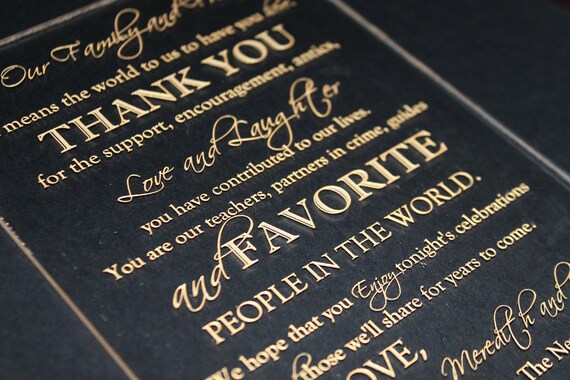 Our Family and
means the world to us to have you here.
THANK YOU
for the support, encouragement, antics,
Love and Laughter
you have contributed to our lives.
You are our teachers, partners in crime, guides
and FAVORITE
PEOPLE IN THE WORLD.
We hope that you Enjoy tonight's celebrations
those we'll share for years to come.
LOVE,
Meredith and
The Ne